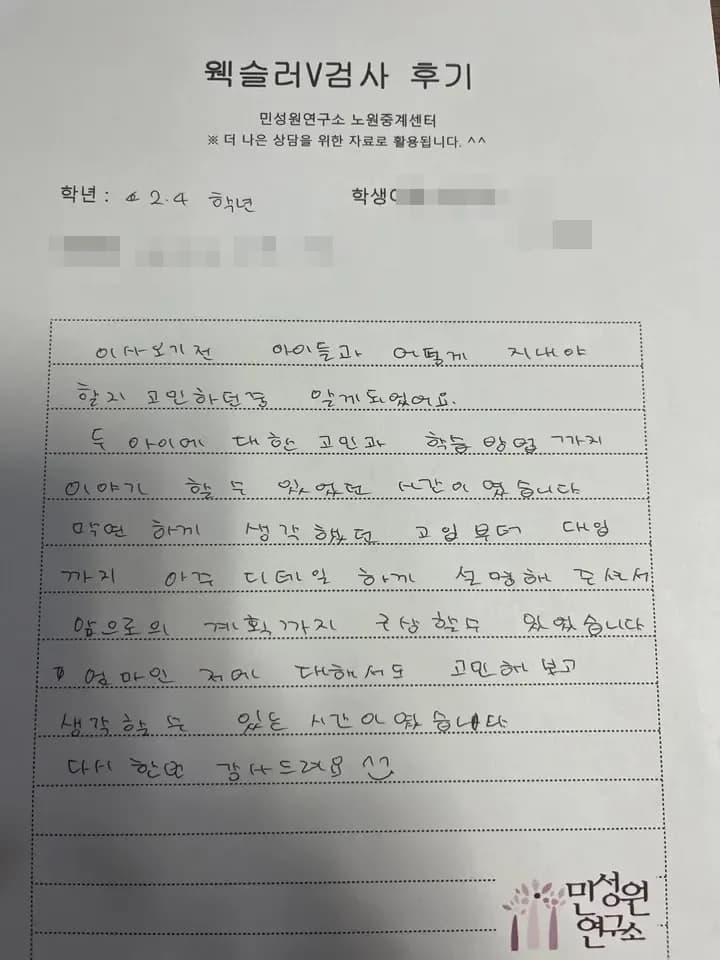 웩슬러V검사 후기
민성원연구소 노원중계센터
※ 더 나은 상담을 위한 자료로 활용됩니다. ^^
학년 : 초 2.4 학년 학생이
이사오기전 아이들과 어떻게 지내야
할지 고민하던중 알게되었어요.
두 아이에 대한 고민과 학습 방법 까지
이야기 할 수 있었던 시간이 였습니다
막연 하게 생각했던 고입부터 대입
까지 아주 디테일 하게 설명해 주셔서
앞으로의 계획까지 구상할수 있었습니다
엄마인 저에 대해서도 고민해보고
생각할 수 있는 시간이였습니다
다시 한번 감사드려요 ^^
민성원
연구소